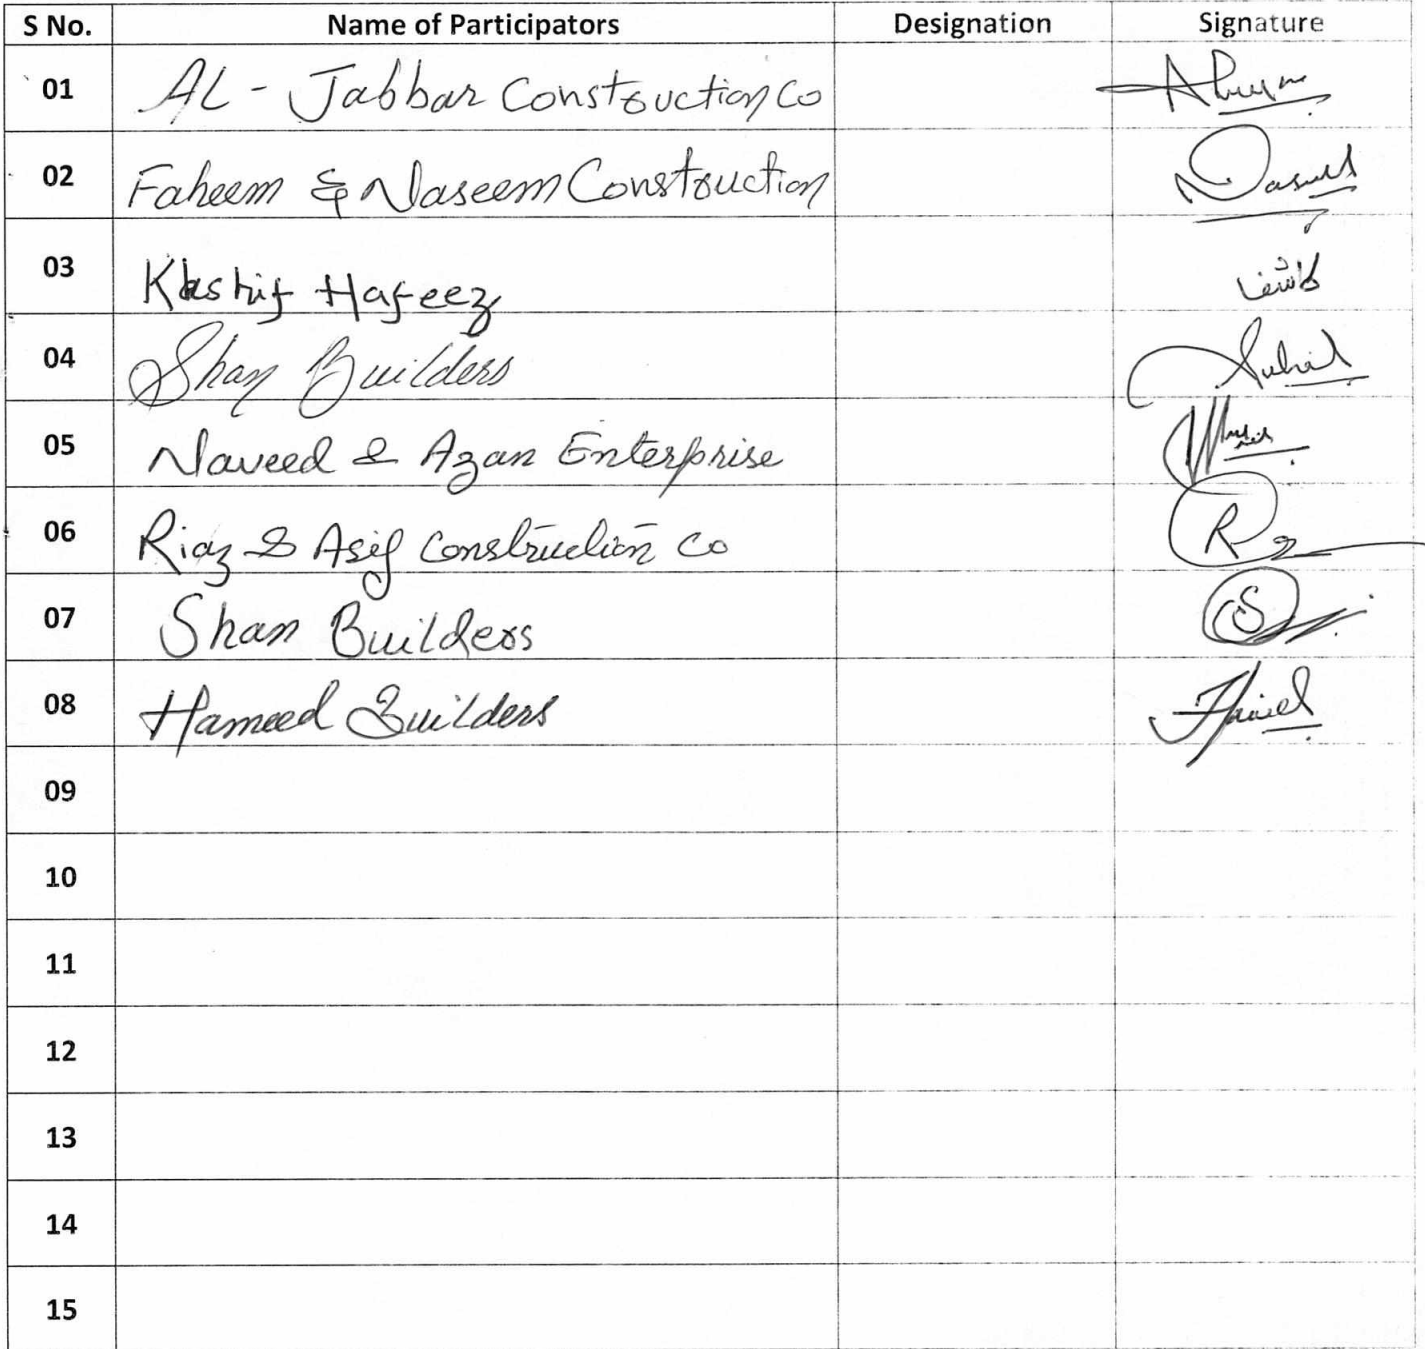 S No. Name of Participators Designation Signature
01 AL - Jabbar Construction Co
02 Faheem & Naseem Construction
03 Kashif Hafeez کاشف
04 Shan Builders
05 Naveed & Azan Enterprise
06 Riaz & Asif Construction Co
07 Shan Builders
08 Hameed Builders
09
10
11
12
13
14
15